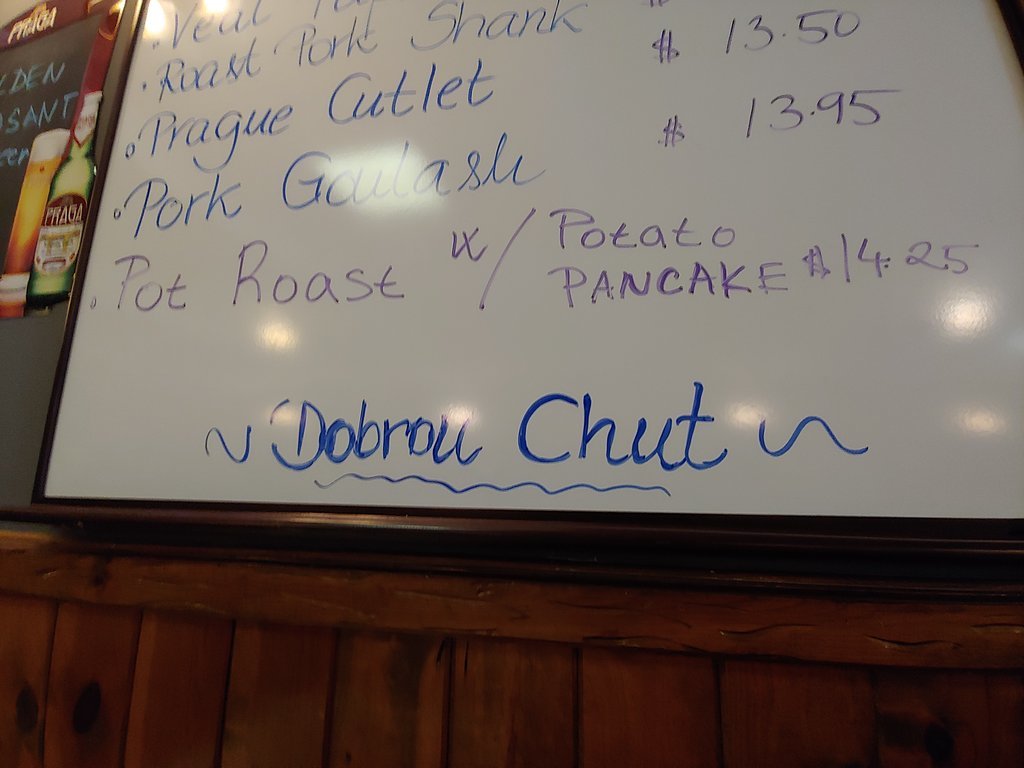 PRAGA
LDEN
SANT
PRAGA
· Veal
· Roast Pork Shank $ 13.50
· Prague Cutlet
· Pork Goulash $ 13.95
· Pot Roast w/ Potato
PANCAKE $14.25
~ Dobrou Chut ~